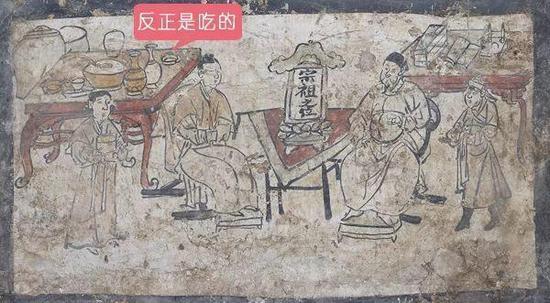 反正是吃的
宗祖之位